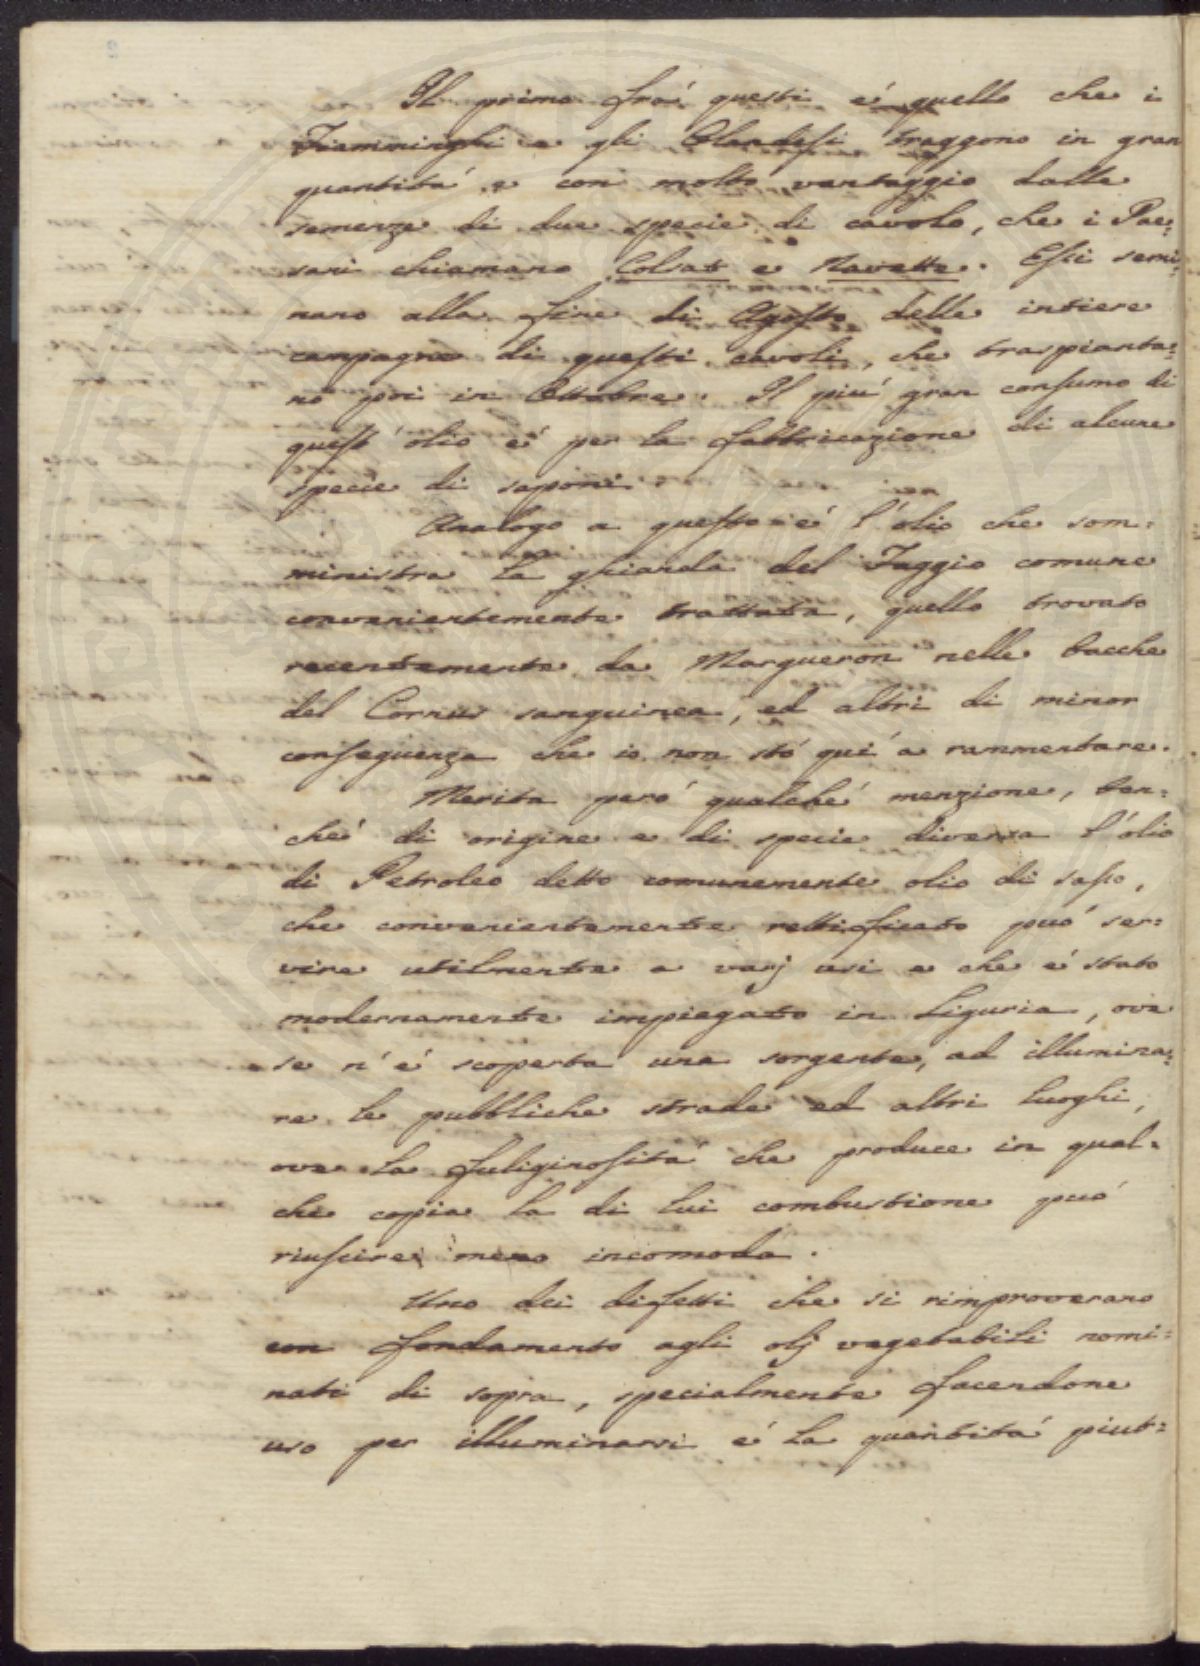 Il primo frà questi è quello che i
Fiamminghi e gli Olandesi traggono in gran
quantità e con molto vantaggio dalle
semenze di due specie di cavolo, che i Pae=
sani chiamano Colsat e Navette. Essi semi=
nano alla fine di Agosto delle intiere
campagne di questi cavoli, che traspianta=
no poi in Ottobre. Il più gran consumo di
quest'olio è per la fabbricazione di alcune
specie di saponi.
Analogo a questo è l'olio che som=
ministra la ghianda del Faggio comune
convenientemente trattata, quello trovato
recentemente da Margueron nelle bacche
del Cornus sanguinea, ed altri di minor
conseguenza che io non stò quì a rammentare.
Merita però qualche menzione, ben=
chè di origine e di specie diversa l'olio
di Petroleo detto comunemente olio di sasso,
che convenientemente rettificato può ser=
vire utilmente a varj usi e che è stato
modernamente impiegato in Liguria, ove
se n'è scoperta una sorgente, ad illumina=
re le pubbliche strade ed altri luoghi,
ove la fuliginosità che produce in qual=
che copia la di lui combustione può
riuscire meno incomoda.
Uno dei difetti che si rimproverano
con fondamento agli olj vegetabili nomi=
nati di sopra, specialmente facendone
uso per illuminarsi è la quantità piut=